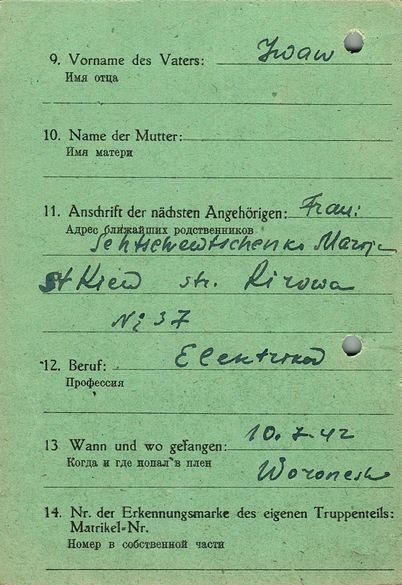 9. Vorname des Vaters: Iwan
Имя отца
10. Name der Mutter:
Имя матери
11. Anschrift der nächsten Angehörigen: Frau:
Адрес ближайших родственников
Schtschewtschenko Maroja
st Kiew str. Kirowa
N: 37
12. Beruf: Elektriker
Профессия
13 Wann und wo gefangen: 10.7.42
Когда и где попал в плен
Woronesh
14. Nr. der Erkennungsmarke des eigenen Truppenteils:
Matrikel-Nr.
Номер в собственной части